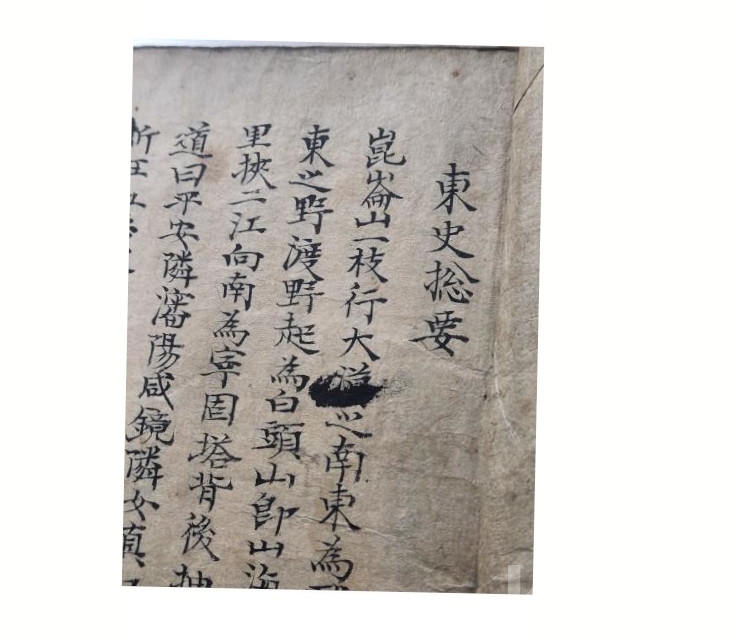 東史捴要
崑崙山一枝行大之南東為
東之野渡野起為白頭山即山海
里挾二江向南為寧固塔背後抽
道曰平安隣瀋陽咸鏡隣女真